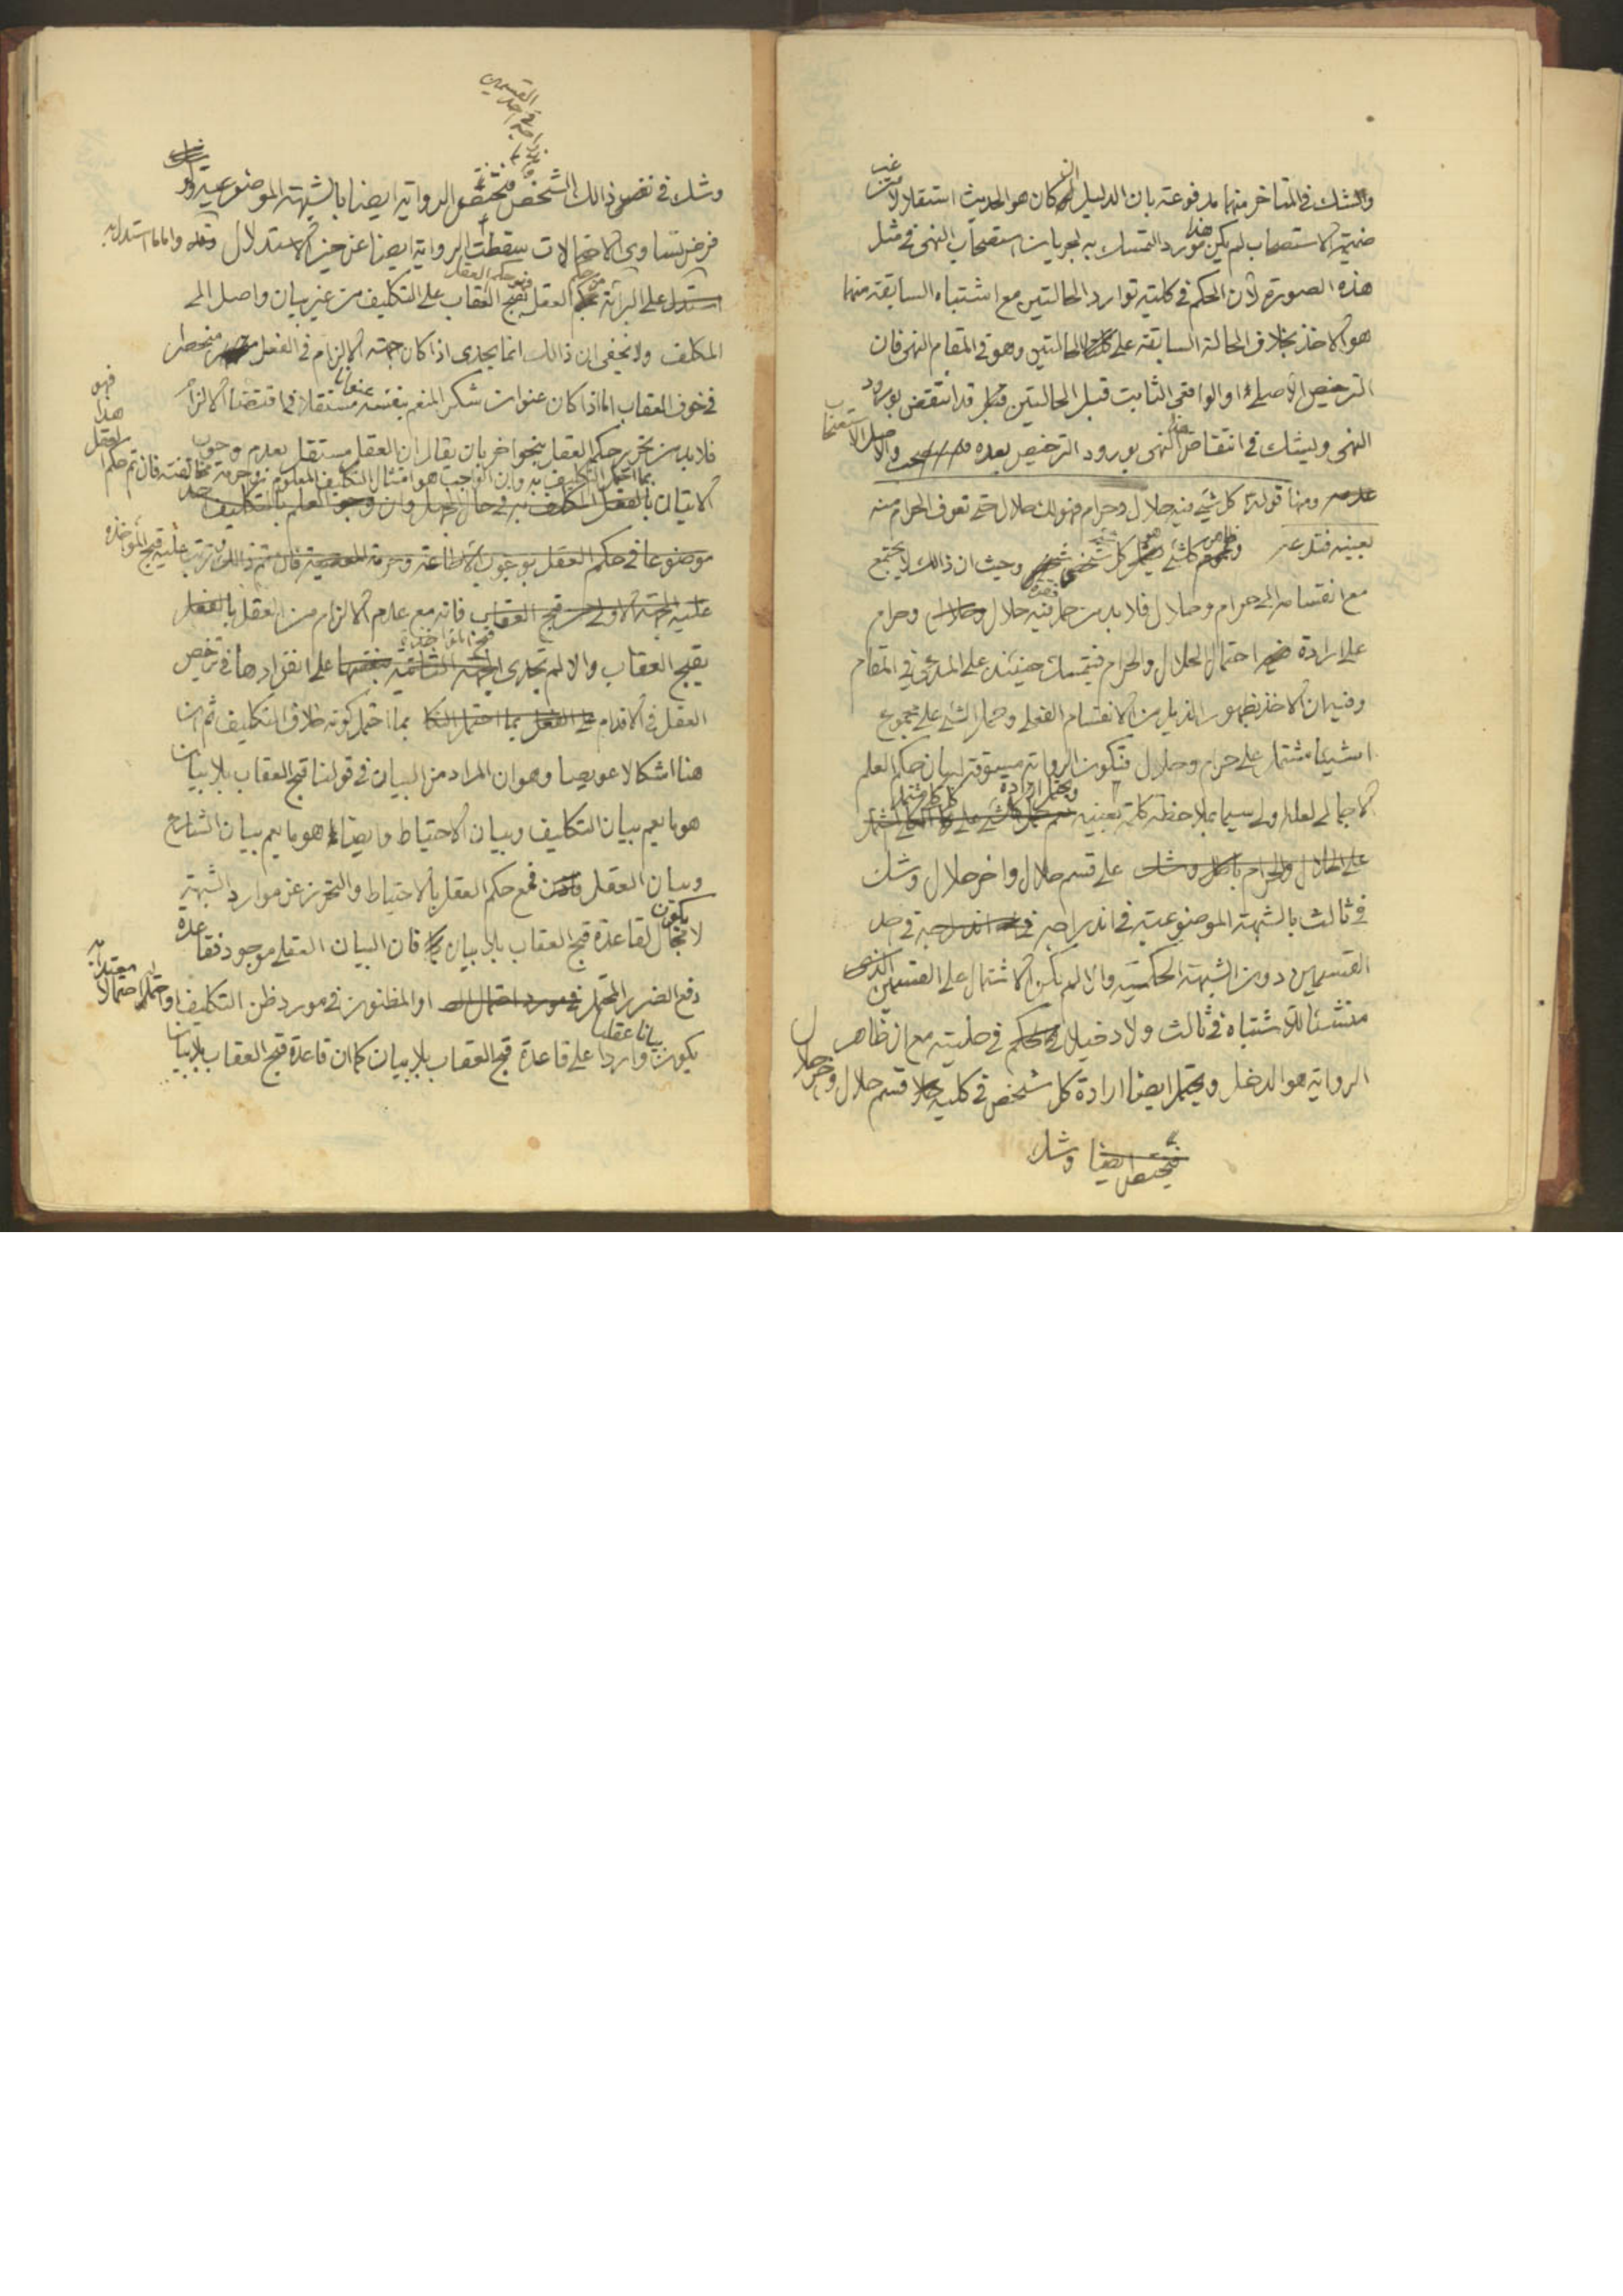 والشك فى المتاخر منهما مدفوعة بان الدليل ان كان هو الحديث استقلالا من غير
ضميمة الاستصحاب لم يكن هذا مورد التمسك به لجريان استصحاب النهى فى مثل
هذه الصورة لان الحكم فى كلية توارد الحالتين مع اشتباه السابقة منهما
هو الاخذ بخلاف الحالة السابقة على الحالتين وهو فى المقام النهى فان
الترخيص الاصلى او الواقعى الثابت قبل الحالتين قد انتقض بورود
النهى ويشك فى انتقاض هذا النهى بورود الترخيص بعده والاصل الاستصحاب
ومنها قوله كل شيء فيه حلال وحرام فهو لك حلال حتى تعرف الحرام منه
بعينه فتدعه وظاهر كل شيء هو كل شخص شخص وحيث ان ذالك لا يجتمع
مع انقسامه الى حرام وحلال فلا بد من حمل فيه حلال وحرام
على ارادة احتمال الحلال والحرام فيتمسك حينئذ على المدعى فى المقام
وفيه ان الاخذ بظهور الذيل من الانقسام الفعلى وحمل الشيء على مجموع
اشياء مشتمل على حرام وحلال فتكون الرواية مسوقة لبيان حكم العلم
الاجمالى لعله اولى سيما بملاحظة كلمة بعينه ويحتمل ارادة كل كلى مشتمل
على قسم حلال واخر حلال وشك
فى ثالث بالشبهة الموضوعية فى اندراجه فى احد
القسمين دون الشبهة الحكمية والا لم يكن الاشتمال على القسمين
منشئا للاشتباه فى ثالث ولا دخيلا فى حليته مع ان ظاهر
الرواية هو الدخل ويحتمل ايضا ارادة كل شخص فى كليه قسم حلال وحرام
وشك
وشك فى نفس ذالك الشخص فتختص الرواية ايضا بالشبهة الموضوعية
فى اندراجه فى احد القسمين
فرض تساوى الاحتمالات سقطت الرواية ايضا عن حيز الاستدلال واما ما استدل به
على البرائة من حكم العقل بقبح العقاب على التكليف من غير بيان واصل الى
المكلف ولا يخفى ان ذالك انما يجدى اذا كان جهة الالزام فى الفعل منحصر
فى خوف العقاب اما اذا كان عنوان شكر المنعم بنفسه عنوانا مستقلا فى اقتضاء الالزام
فلا بد من تحرير حكم العقل بنحو اخر بان يقال ان العقل مستقل بعدم وجوب
الاتيان بما احتمل التكليف به وان الواجب هو امتثال التكليف المعلوم وحرمة مخالفته فان تم حكم العقل هذا فهو
فانه مع عدم الالزام من العقل بالفعل
يقبح العقاب والا لم تجدى قبح المؤاخذة على انفرادها فى ترخيص
العقل فى الاقدام بما احتمل كونه خلاف التكليف ثم ان
هنا اشكالا عويصا وهو ان المراد من البيان فى قولنا قبح العقاب بلا بيان
هو ما يعم بيان التكليف وبيان الاحتياط وايضا هو ما يعم بيان الشارع
وبيان العقل فمع حكم العقل بالاحتياط والتحرز عن موارد الشبهة
لا يكون مجال لقاعدة قبح العقاب بلا بيان فان البيان العقلى موجود فقاعدة
دفع الضرر المحتمل او المظنون فى مورد ظن التكليف او احتماله احتمالا معتدا به
يكون بيانا عقليا واردا على قاعدة قبح العقاب بلا بيان كما ان قاعدة قبح العقاب بلا بيان